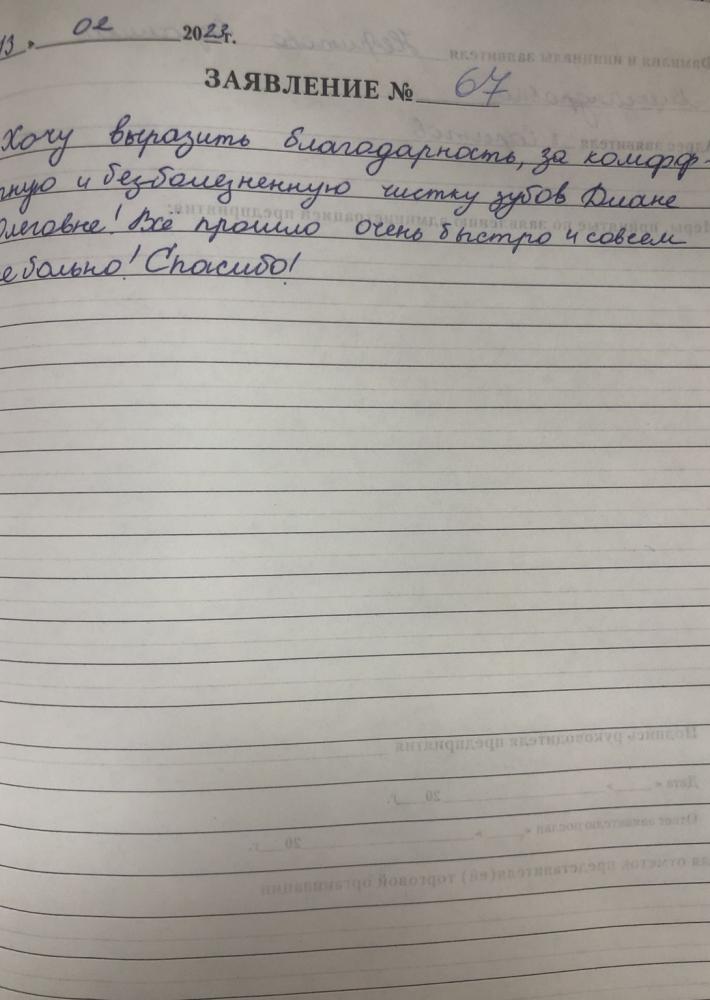 13 » 02 2023г.
ЗАЯВЛЕНИЕ № 67
Хочу выразить благодарность, за комфор-
тную и безболезненную чистку зубов Диане
Олеговне! Всё прошло очень быстро и совсем
не больно! Спасибо!